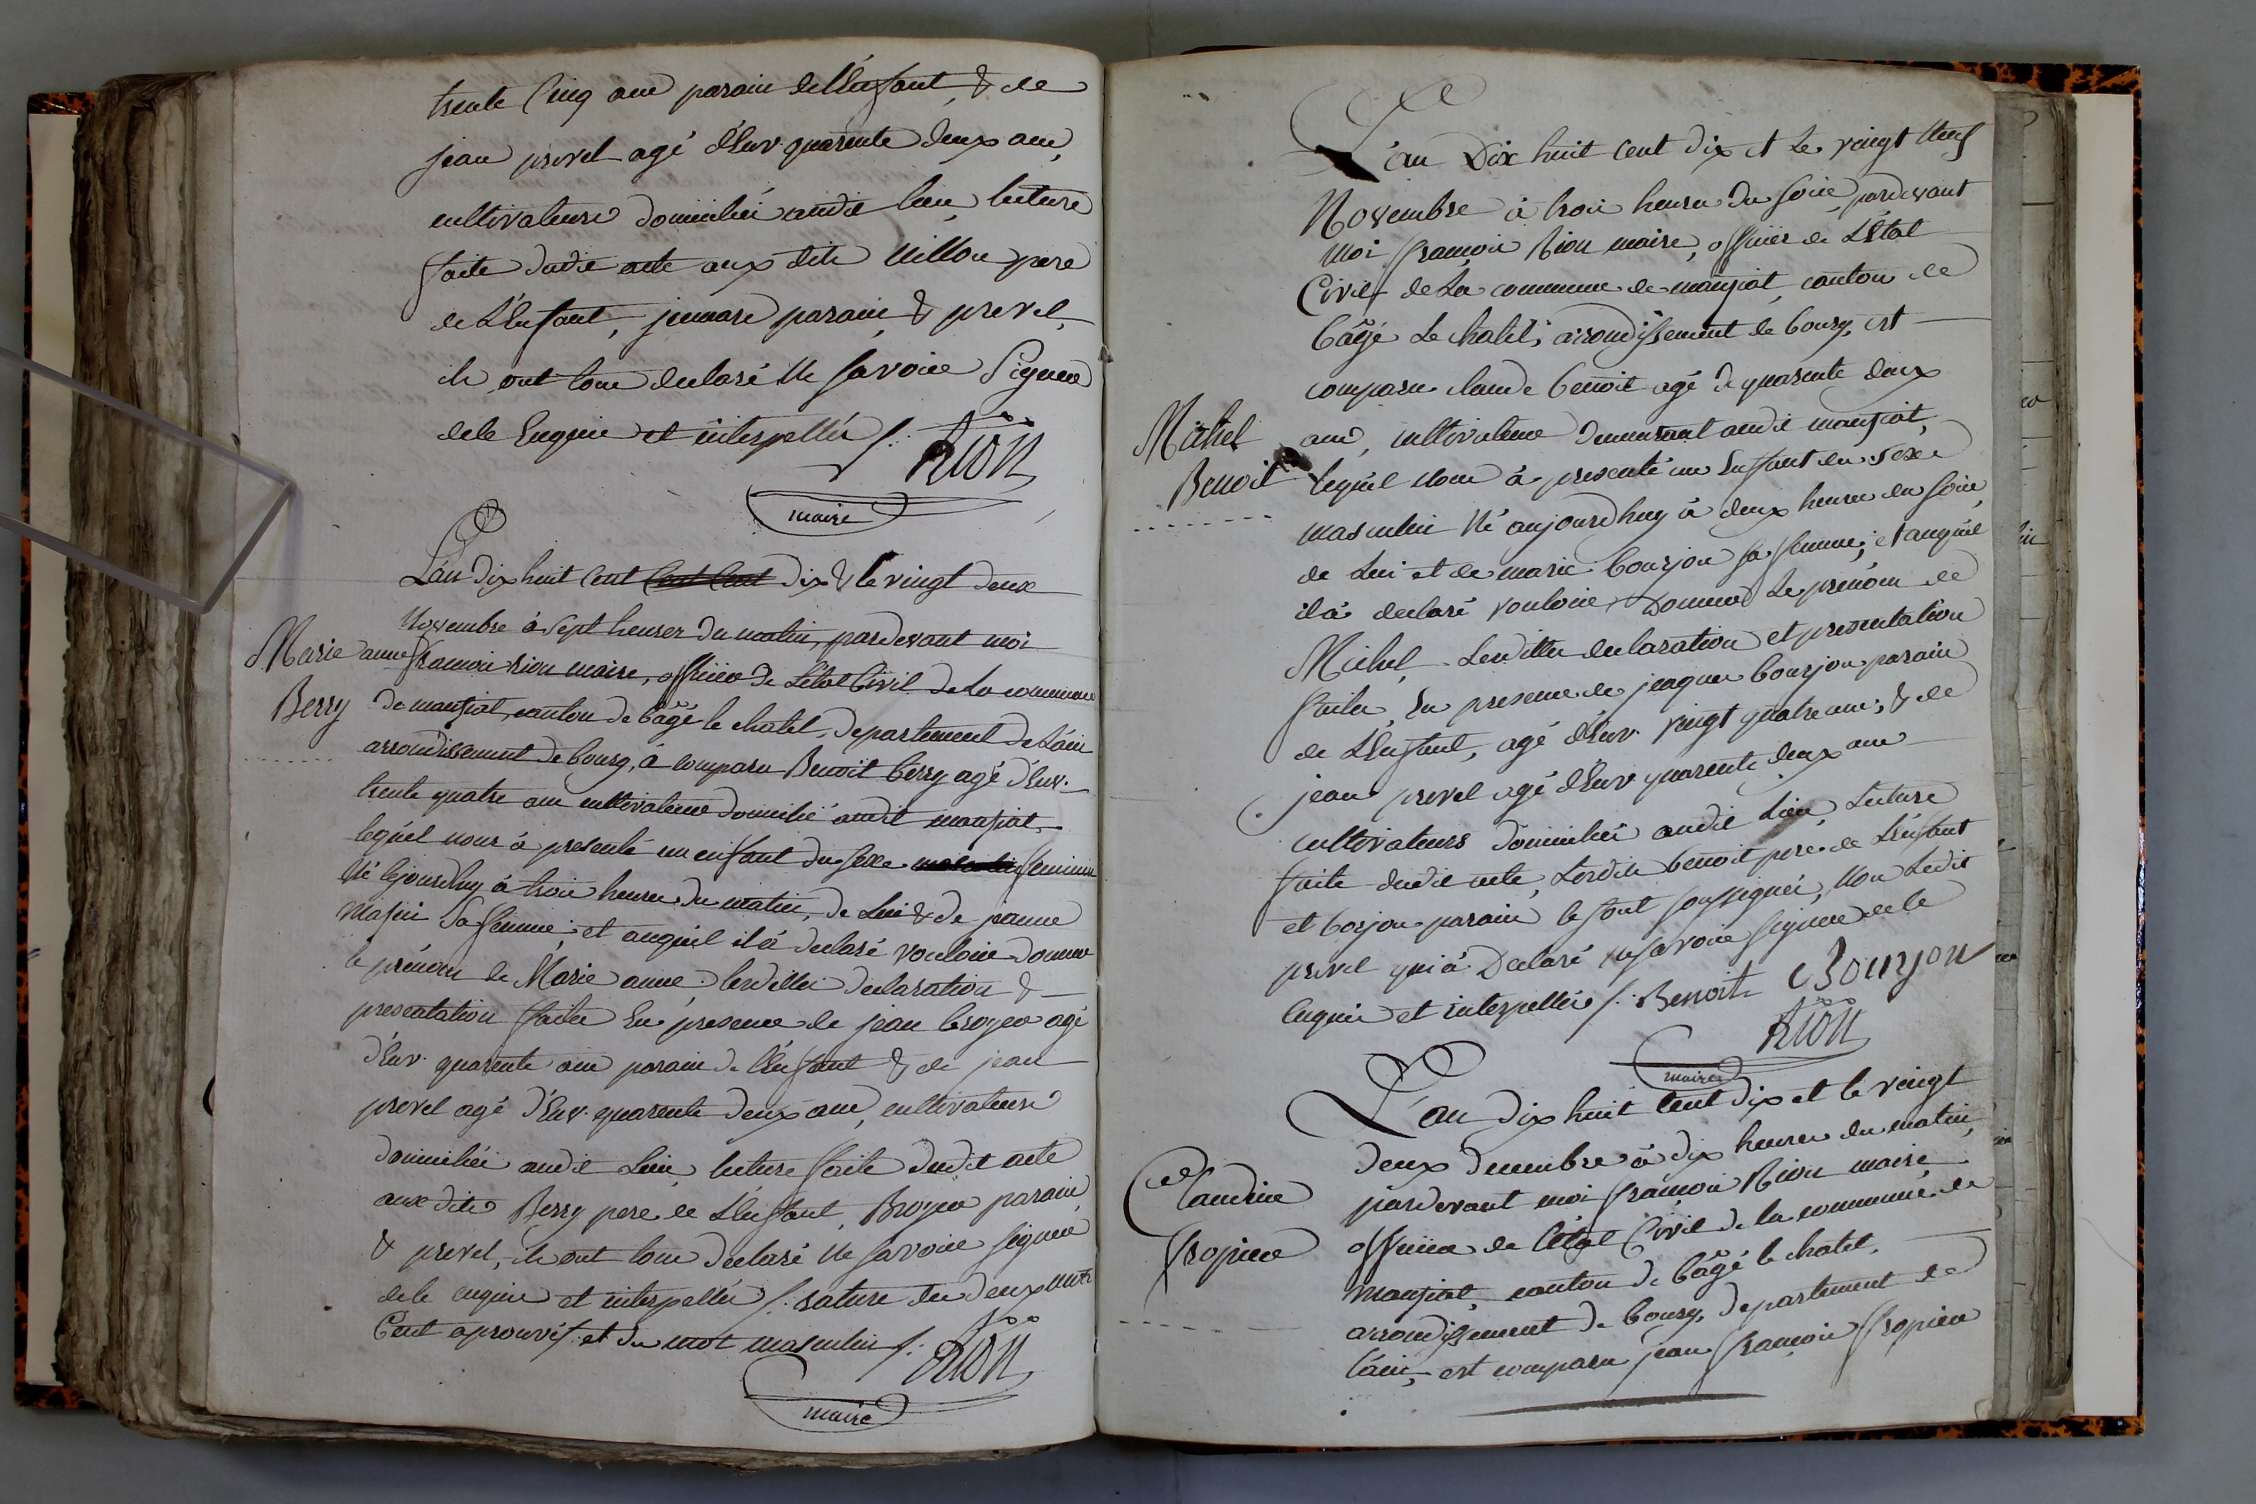 trente Cinq ans parain de l'Enfant, & de
jean prevel agé d'Env. quarente deux ans,
cultivateurs domiciliés audit lieu, lecture
faite dudit acte aux dits Millon pere
de L'Enfant, jennare parain & prevel,
ils ont tous declaré Ne savoir Signer
de le Enquis et interpellés /.
Rion
maire
L'an dix huit Cent Cent Cent dix & le vingt deux
Novembre à sept heures du matin, pardevant moi
Marie anne
Berry
françois rion maire, officier de L'etat Civil de La commune
de manziat, canton de bâgé le chatel, departement de L'ain
arrondissement de bourg, à comparu Benoit berry agé d'Env.
trente quatre ans cultivateur domicilié audit manziat,
lequel nous à presenté un enfant du sexe masculin feminin
Né cejourdhuy à trois heures du matin, de Lui & de jeanne
Mafui Sa femme; et auquel il à declaré vouloir donner
le prénom de Marie anne, lesdittes declaration &
presentation faites En presence de jean broyer agé
d'Env. quarente ans parain de l'Enfant & de jean
prevel agé d'Env. quarente deux ans, cultivateurs
domiciliés audit Lieu, lecture faite dudit acte
aux dits Berry pere de L'Enfant, Broyer parain,
& prevel, ils ont tous declaré Ne savoir signer
de le enquis et interpellés /. rature des deux mots
Cent aprouvés et du mot masculin /.
Rion
maire
L'an Dix huit Cent dix et Le vingt Neuf
Novembre à trois heures du soir, pardevant
Moi françois Rion maire, officier de L'Etat
Civil de La commune de manziat, canton de
bâgé Le chatel, arrondissement de bourg, est
comparu claude benoit agé de quarente deux
Michel
Benoit
ans, cultivateur demeurant audit manziat,
lequel Nous à presenté un Enfant du sexe
masculin Né aujourdhuy à deux heures du soir,
de Lui et de marie bourjon sa femme; et auquel
il à declaré vouloir Donner Le prénom de
Michel, Lesdittes declaration et presentation
faites, En presence de jacques bourjon parain
de L'Enfant, agé d'Env. vingt quatre ans, & de
jean prevel agé d'Env quarente deux ans
cultivateurs domiciliés audit Lieu, Lecture
faite dudit acte, Lesdits benoit pere de L'Enfant
et borjon parain le sont soussignés, Non Ledit
prevel qui à Declaré Ne savoir signer de le
Enquis et interpellés /. Benoit Bourjon
Rion
maire
L'an dix huit Cent dix et le vingt
deux decembre à dix heures du matin,
Claudine
fropier
pardevant moi françois Rion maire
officier de l'état Civil de la commune de
manziat, canton de bâgé le chatel,
arrondissement de bourg, departement de
l'ain, est comparu jean françois fropier